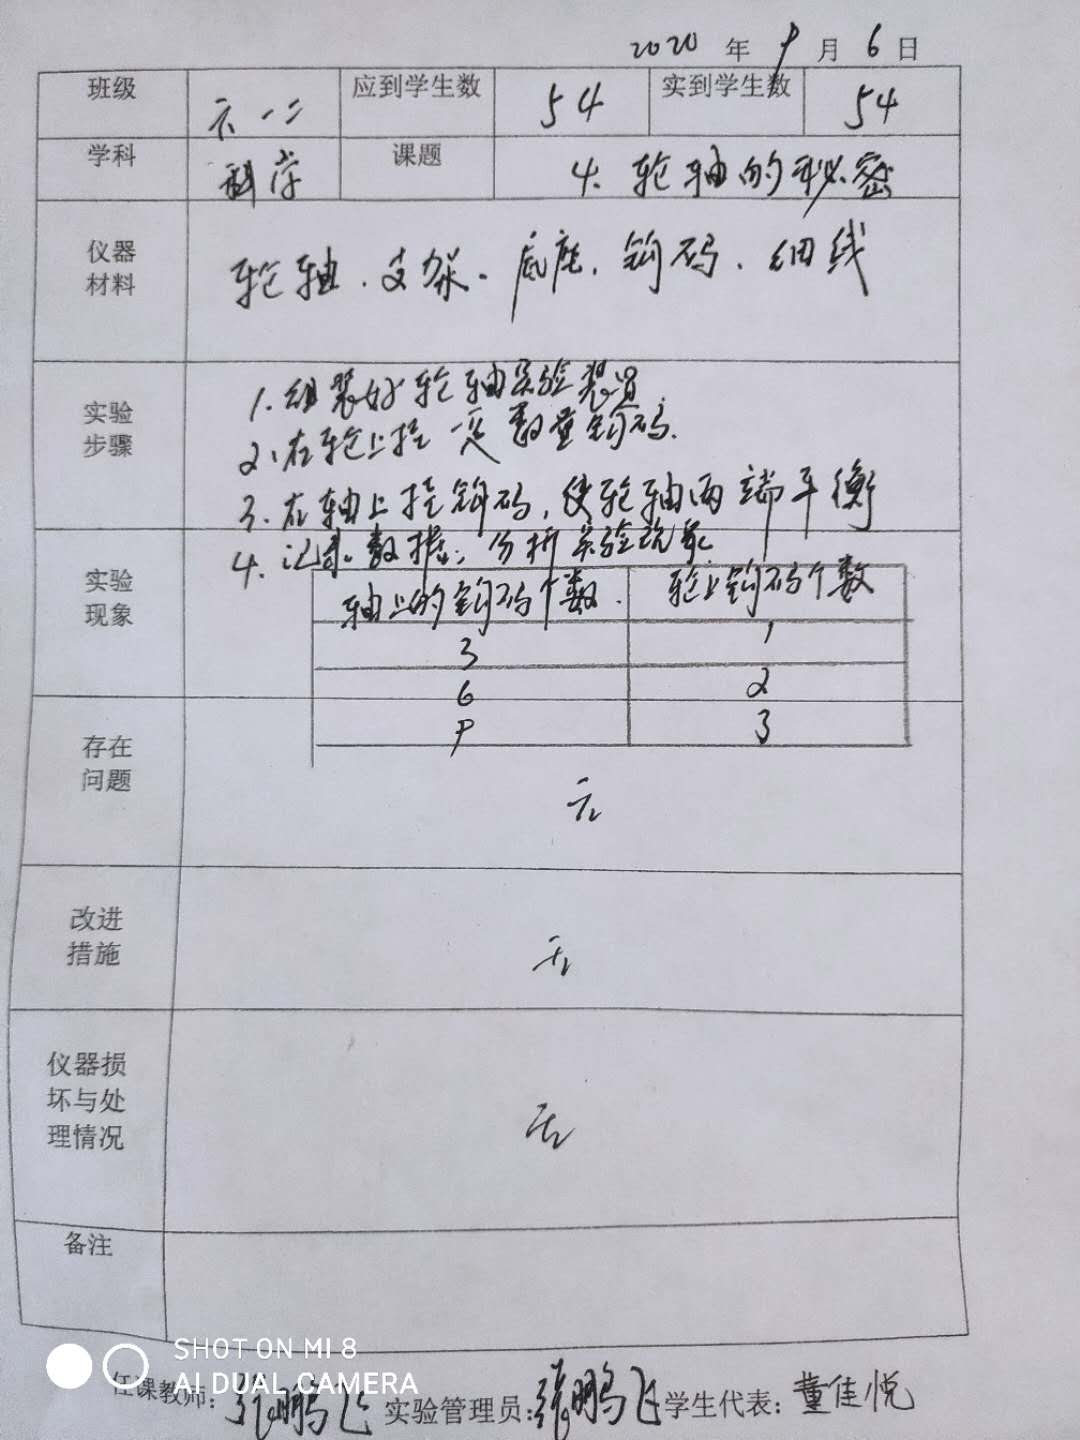 2020 年 9 月 6 日
班级 六.一二 应到学生数 54 实到学生数 54
学科 科学 课题 4. 轮轴的秘密
仪器
材料
轮轴、支架、底座、钩码、细线
实验
步骤
1. 组装好轮轴实验装置
2、在轮上挂一定数量钩码.
3. 在轴上挂钩码,使轮轴两端平衡
4. 记录数据,分析实验现象
实验
现象
轴上的钩码个数. 轮上钩码个数
3 1
6 2
9 3
存在
问题
无
改进
措施
无
仪器损
坏与处
理情况
无
备注
SHOT ON MI 8
AI DUAL CAMERA
任课教师: 张鹏飞 实验管理员: 张鹏飞 学生代表: 董佳悦